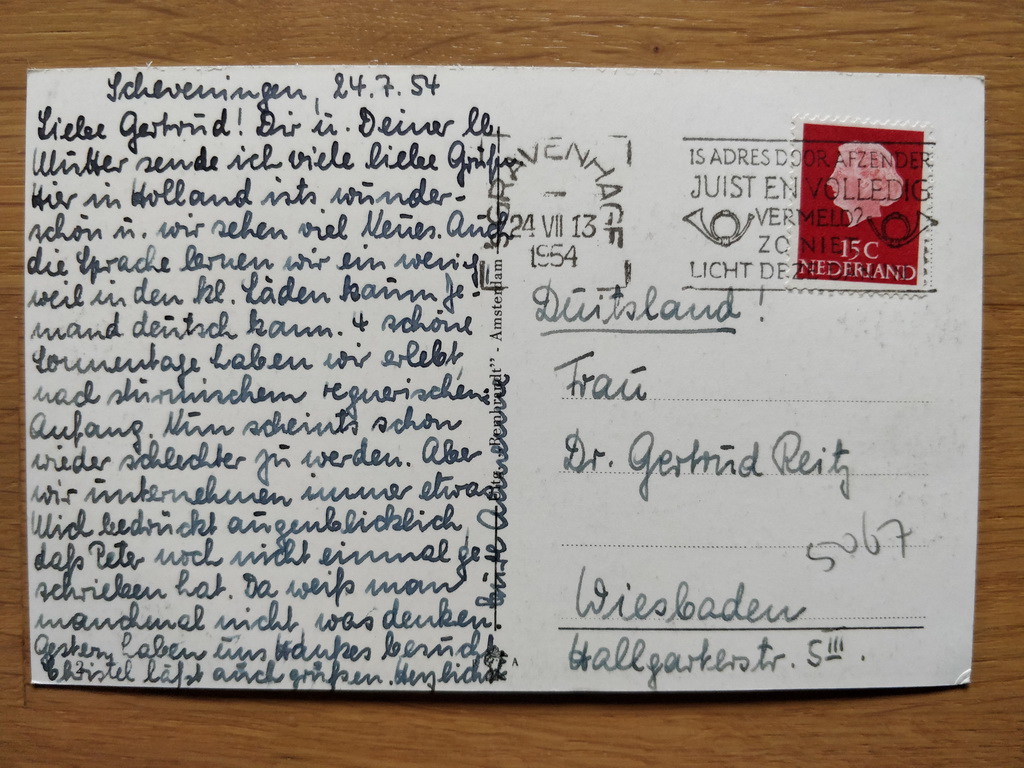 Scheveningen, 24.7.54
Liebe Gertrud! Dir u. Deiner lb.
Mutter sende ich viele liebe Grüße
Hier in Holland ists wunder-
schön u. wir sehen viel Neues. Auch
die Sprache lernen wir ein wenig
weil in den kl. Läden kaum je-
mand deutsch kann. 4 schöne
Sonnentage haben wir erlebt,
nach stürmischem regnerischem
Anfang. Nun scheints schon
wieder schlechter zu werden. Aber
wir unternehmen immer etwas
Mich bedrückt augenblicklich,
daß Peter noch nicht einmal ge-
schrieben hat. Da weiß man
manchmal nicht, was denken.
Gestern haben uns besucht
Christel läßt auch grüßen. Herzlichst
Eure
Rembrandt" - Amsterdam
A
'S GRAVENHAGE
24 VII 13
1954
IS ADRES DOOR AFZENDER
JUIST EN VOLLEDIG
VERMELD?
ZO NIET
LICHT DEZE IN
15 C
NEDERLAND
Duitsland!
Frau
Dr. Gertrud Reitz
5067
Wiesbaden
Hallgarterstr. 5III.